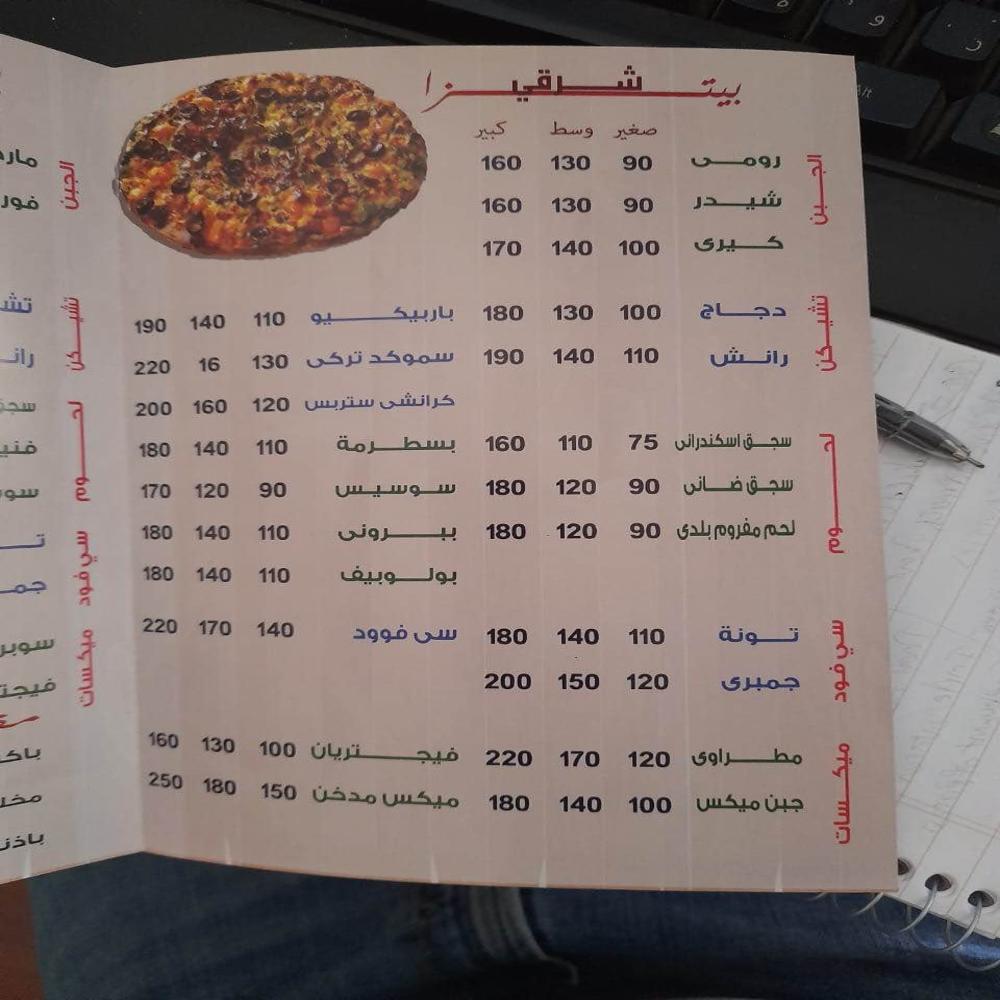 بيتزا شرقي
صغير وسط كبير
الجبن
رومى 90 130 160
شيدر 90 130 160
كيرى 100 140 170
تشيكن
دجاج 100 130 180 باربيكيو 110 140 190
رانش 110 140 190 سموكد تركى 130 16 220
كرانشى ستربس 120 160 200
لحوم
سجق اسكندرانى 75 110 160 بسطرمة 110 140 180
سجق ضانى 90 120 180 سوسيس 90 120 170
لحم مفروم بلدى 90 120 180 ببرونى 110 140 180
بولوبيف 110 140 180
سي فود
تونة 110 140 180 سى فوود 140 170 220
جمبرى 120 150 200
ميكسات
مطراوى 120 170 220 فيجتريان 100 130 160
جبن ميكس 100 140 180 ميكس مدخن 150 180 250
الجبن
تشيكن
لحوم
سي فود
ميكسات